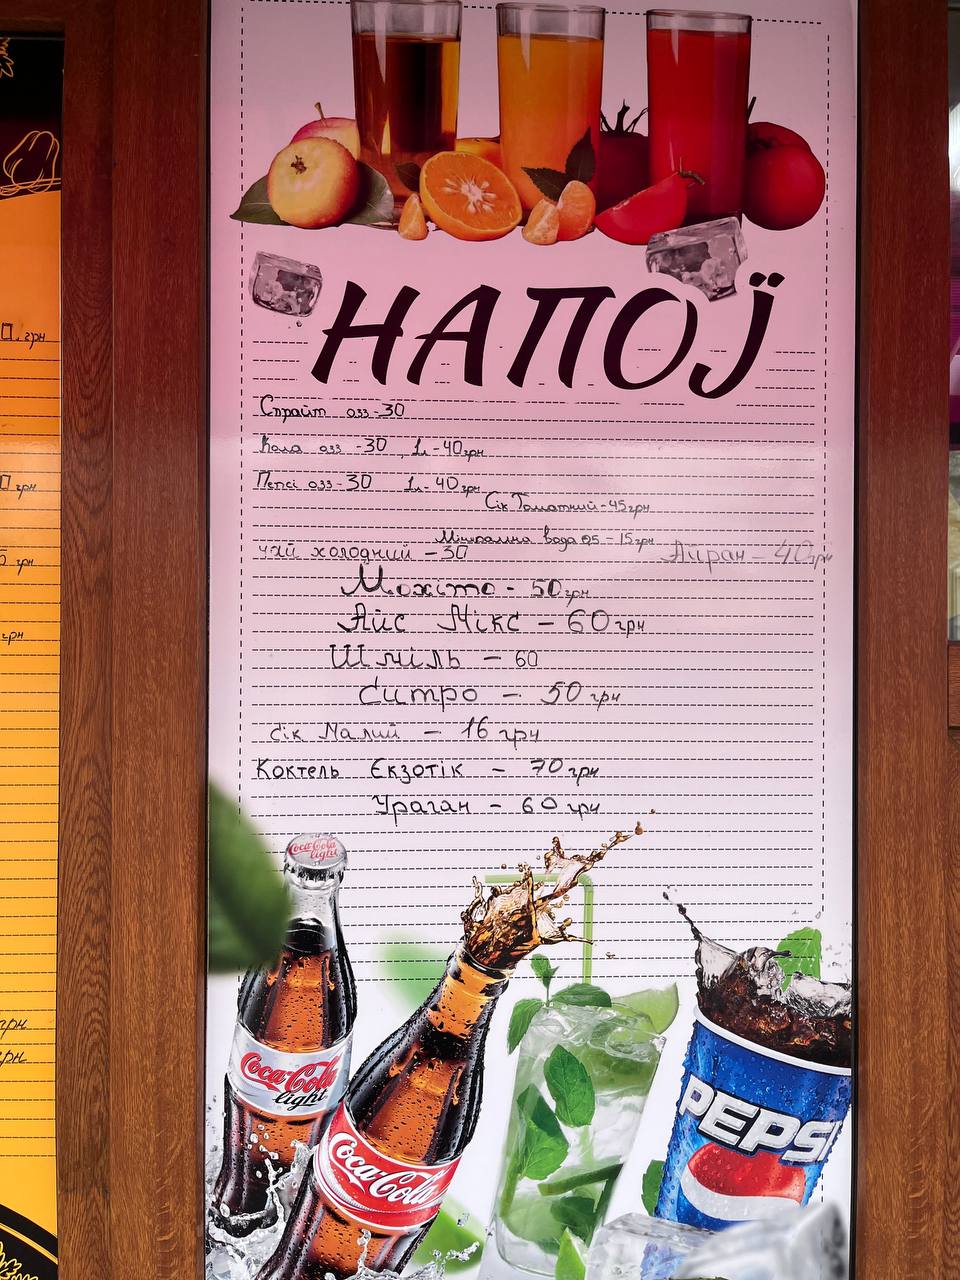 НАПОЇ
Спрайт 033-30
Кола 033-30, 1л-40грн
Пепсі 033-30 1л-40грн
Сік Томатний-45грн
Мінеральна вода 05-15грн
чай холодний -30
Айран-40грн
Мохіто-50грн
Айс Мікс-60грн
Шміль-60
Ситро-50грн
Сік Малий-16грн
Коктель Екзотік-70грн
Ураган-60грн
Coca-Cola
light
Coca-Cola
light
Coca-Cola
PEPSI
0.грн
0грн
грн
грн
грн
грн